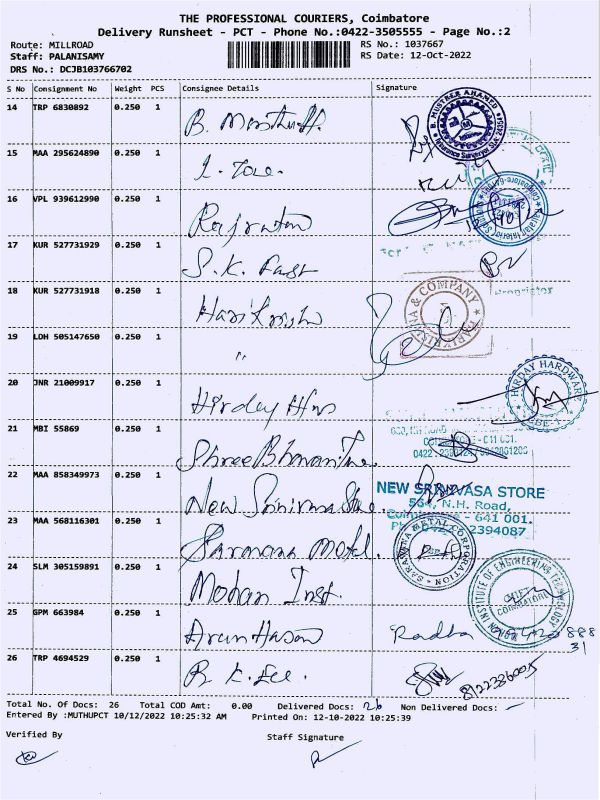 THE PROFESSIONAL COURIERS, Coimbatore
Delivery Runsheet - PCT - Phone No.:0422-3505555 - Page No.:2
Route: MILLROAD
RS No.: 1037667
Staff: PALANISAMY
RS Date: 12-Oct-2022
DRS No.: DCJB103766702
S No Consignment No Weight PCS Consignee Details Signature
14 TRP 6830892 0.250 1
B. MUSTHER AHAMED
15 MAA 295624890 0.250 1
16 VPL 939612990 0.250 1 Rajratan
17 KUR 527731929 0.250 1 S.K. Fast
18 KUR 527731918 0.250 1 Harikrish
HARIKRISHNA & COMPANY
Proprietor
19 LDH 505147650 0.250 1 "
20 JNR 21009917 0.250 1 Hirday Hws
HIRDAY HARDWARE
21 MBI 55869 0.250 1 Shree Bhavani Tme.
22 MAA 858349973 0.250 1 New Srinivasa Store
NEW SRINIVASA STORE
564, N.H. Road,
Coimbatore - 641 001.
2394087
23 MAA 568116301 0.250 1 Sarmana Metal.
SARAVANA METAL CORPORATION
24 SLM 305159891 0.250 1 Mohan Inst.
INSTITUTE OF ENGINEERING TECHNOLOGY
COIMBATORE
25 GPM 663984 0.250 1 Arun Hasan Radha
888
31
26 TRP 4694529 0.250 1 R. K. Lee.
8122386005
Total No. Of Docs: 26 Total COD Amt: 0.00 Delivered Docs: 26 Non Delivered Docs: -
Entered By :MUTHUPCT 10/12/2022 10:25:32 AM Printed On: 12-10-2022 10:25:39
Verified By
Staff Signature